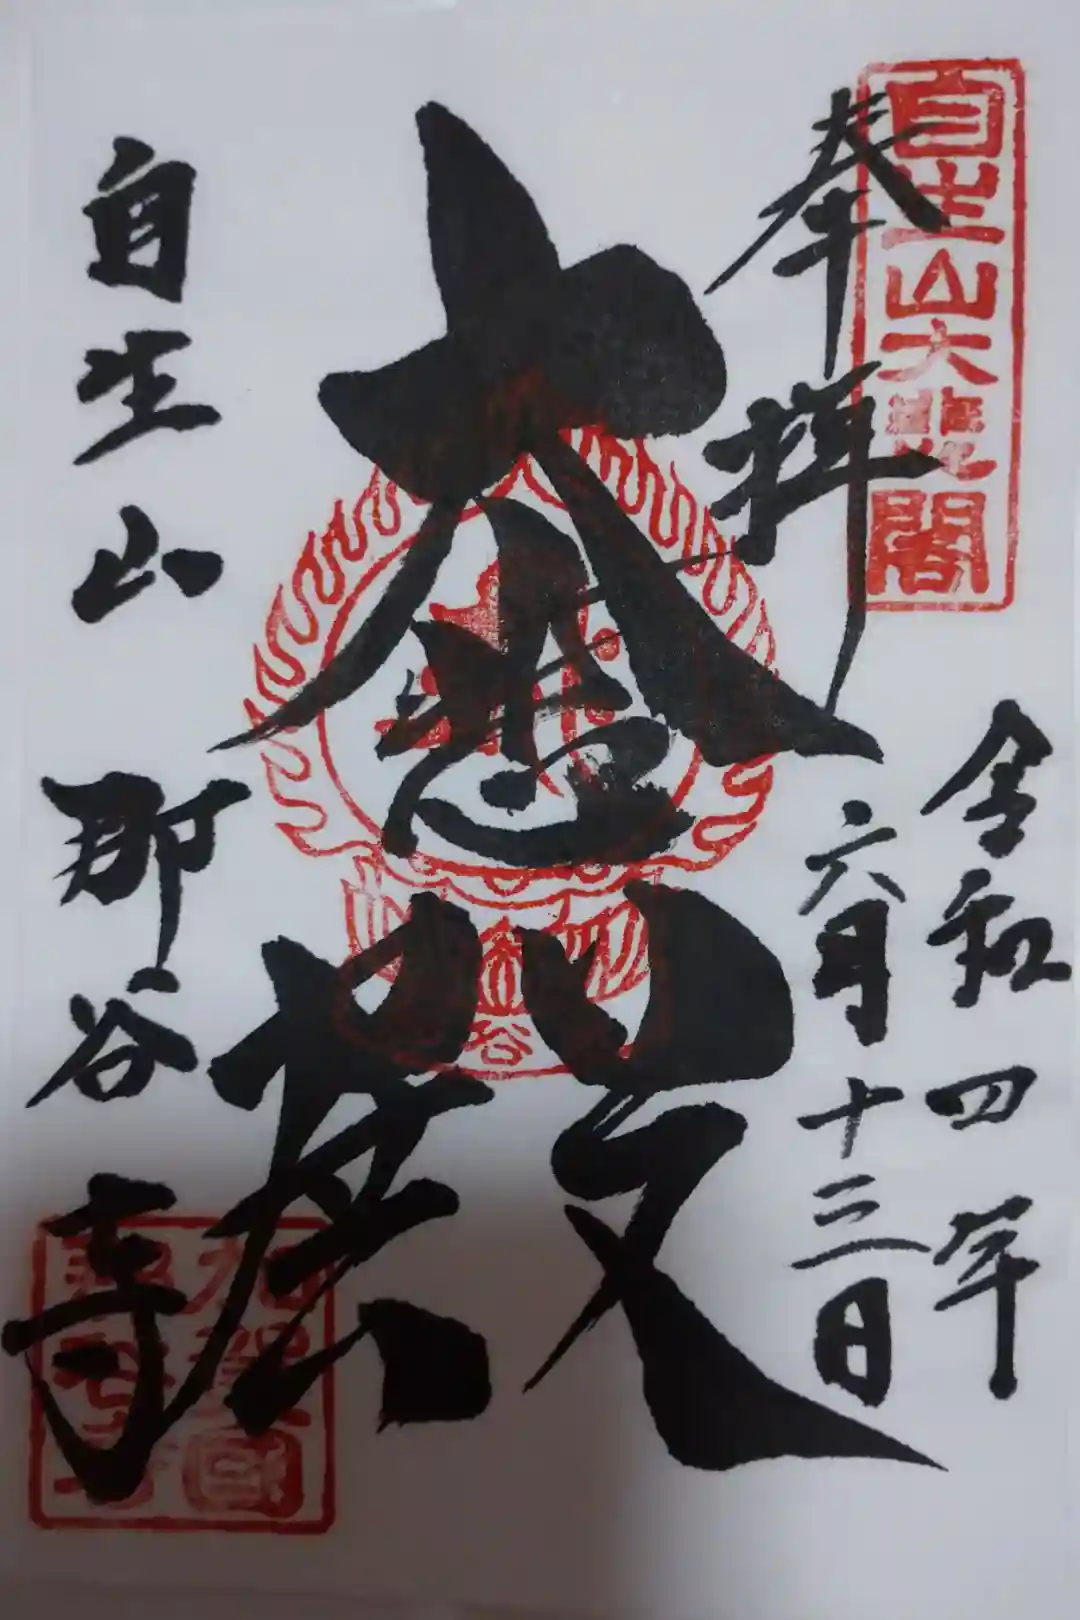 自生山大悲閣
奉拝
令和四年
六月十三日
大悲殿
自生山
那谷寺
加賀國
那谷寺